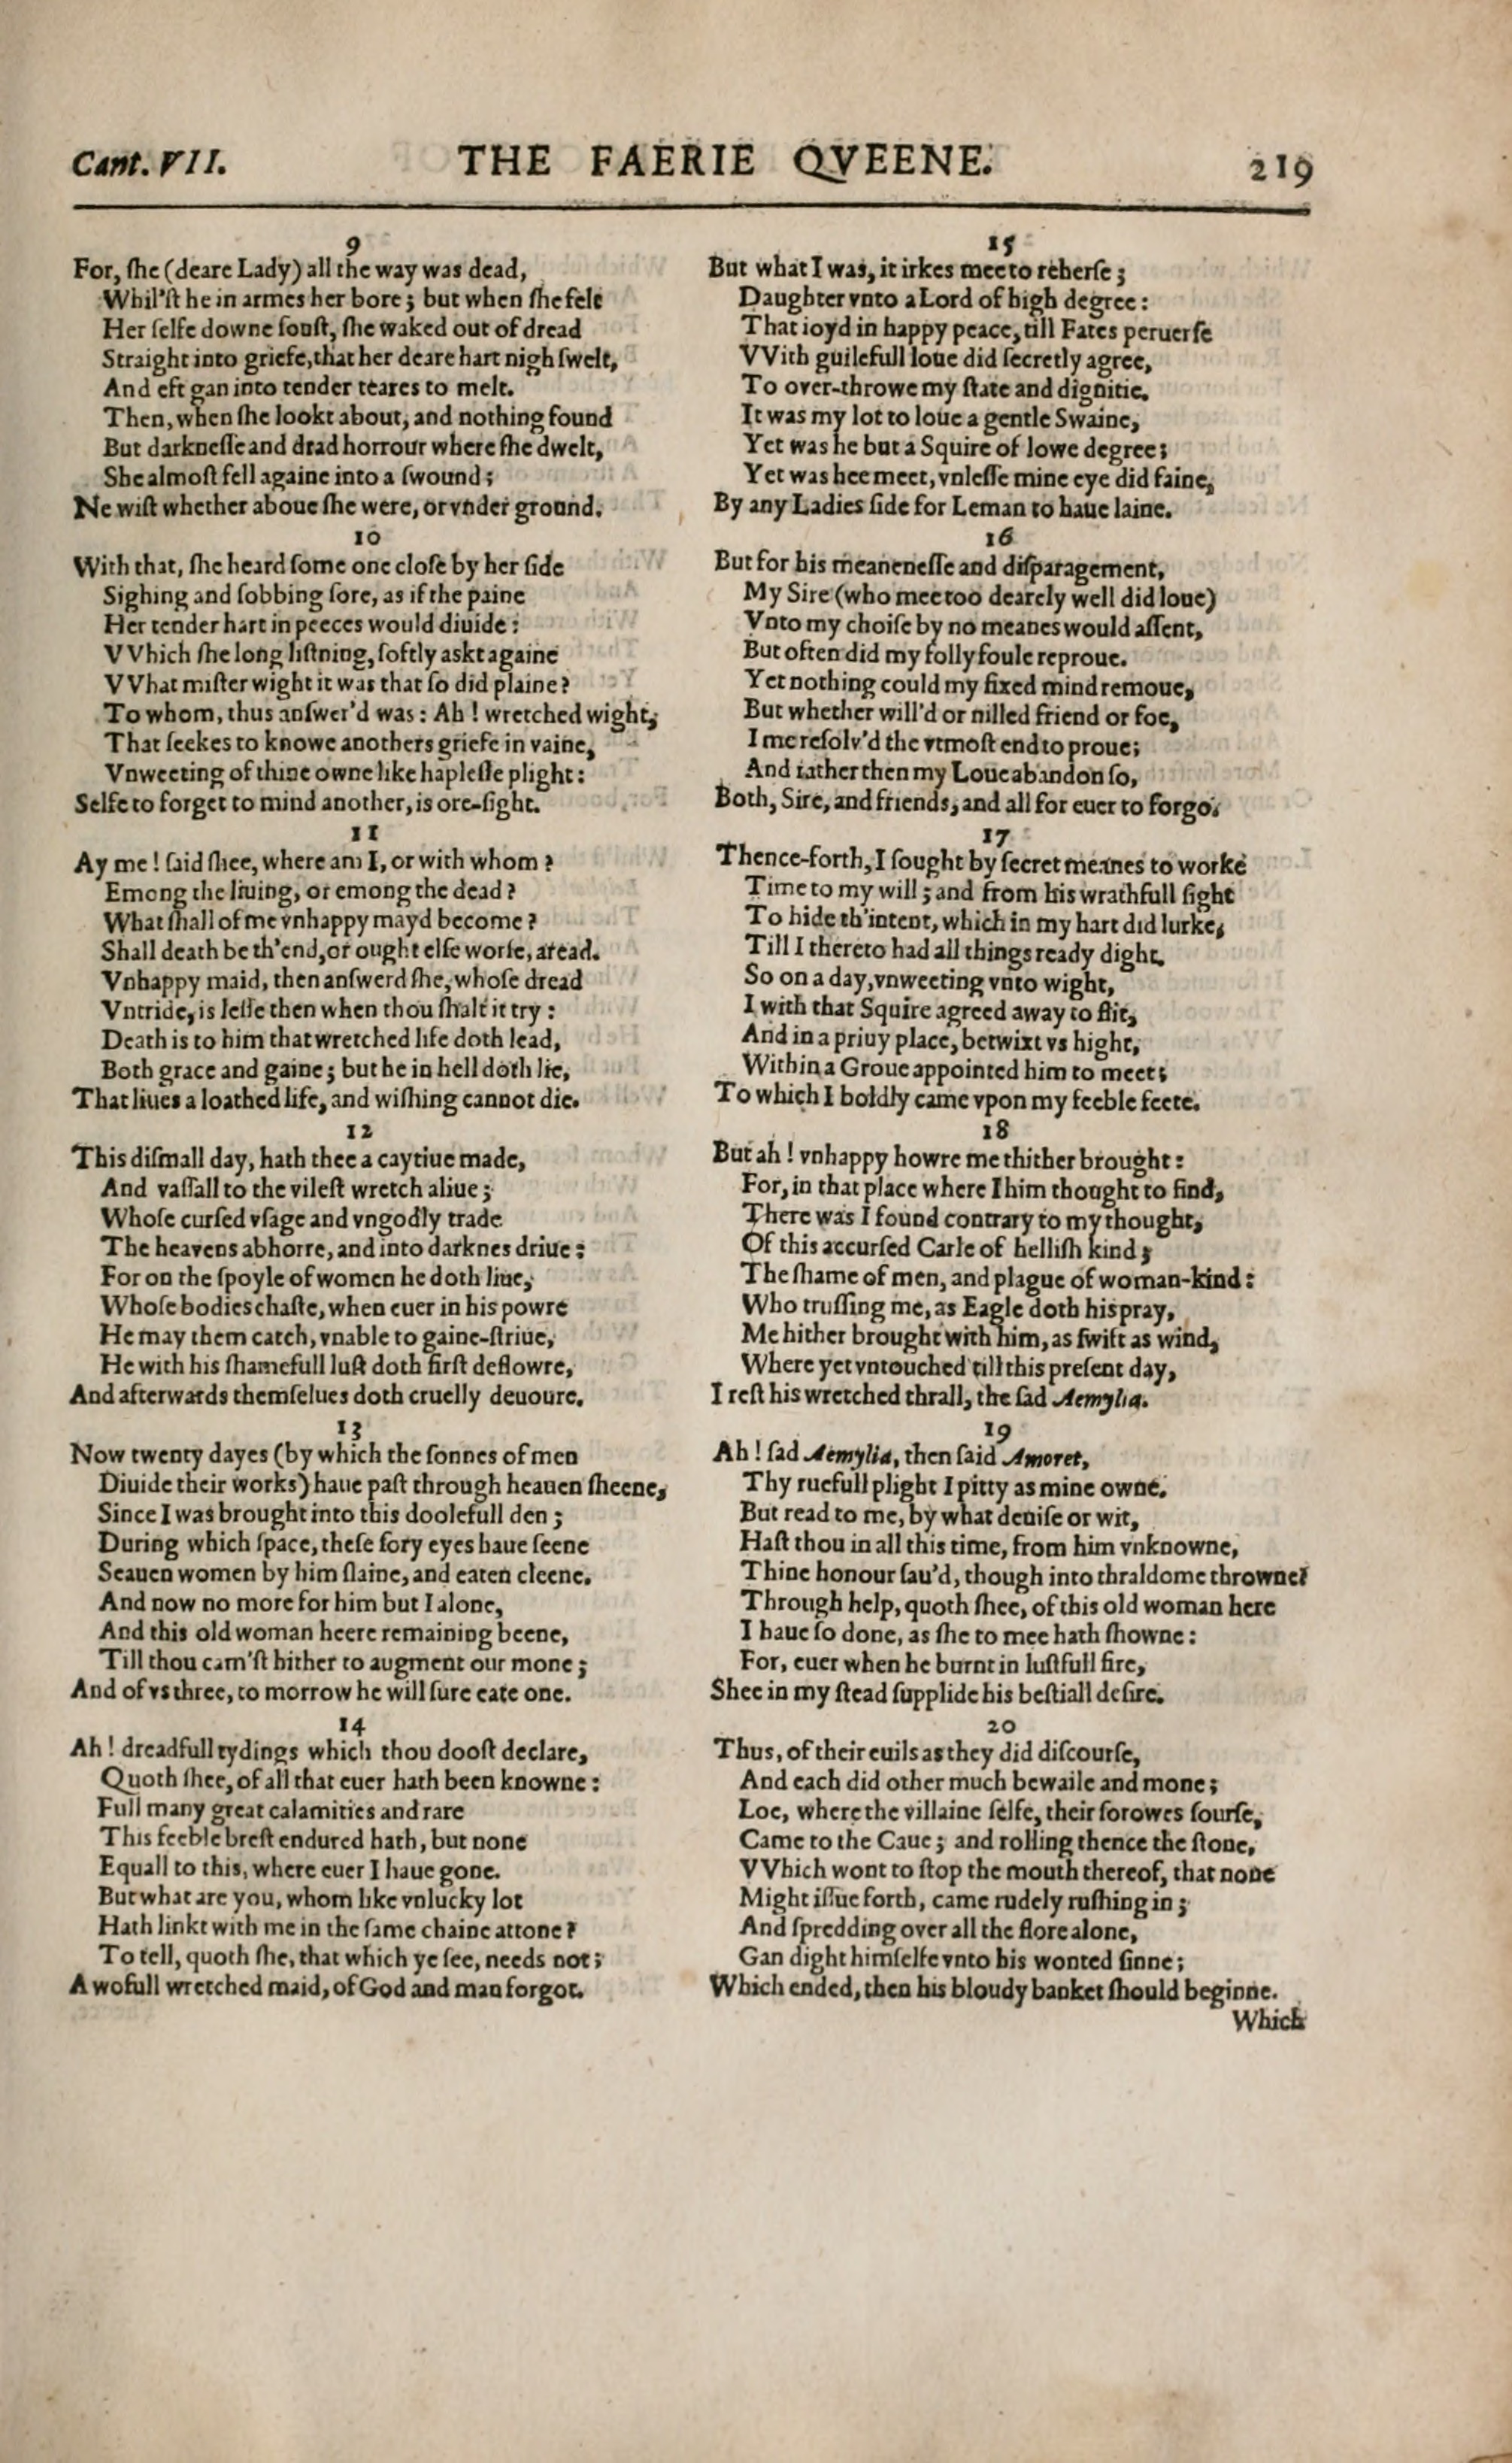 Cant. VII. THE FAERIE QVEENE. 219
9
For, ſhe (deare Lady) all the way was dead,
Whil'ſt he in armes her bore; but when ſhe felt
Her ſelfe downe ſouſt, ſhe waked out of dread
Straight into griefe, that her deare hart nigh ſwelt,
And eft gan into tender teares to melt.
Then, when ſhe lookt about, and nothing found
But darkneſſe and drad horrour where ſhe dwelt,
She almoſt fell againe into a ſwound;
Ne wiſt whether aboue ſhe were, or vnder ground.
10
With that, ſhe heard ſome one cloſe by her ſide
Sighing and ſobbing ſore, as if the paine
Her tender hart in peeces would diuide:
VVhich ſhe long liſtning, ſoftly askt againe
VVhat miſter wight it was that ſo did plaine?
To whom, thus anſwer'd was: Ah! wretched wight,
That ſeekes to knowe anothers griefe in vaine,
Vnweeting of thine owne like hapleſſe plight:
Selfe to forget to mind another, is ore-ſight.
11
Ay me! ſaid ſhee, where am I, or with whom?
Emong the liuing, or emong the dead?
What ſhall of me vnhappy mayd become?
Shall death be th'end, or ought elſe worſe, aread.
Vnhappy maid, then anſwerd ſhe, whoſe dread
Vntride, is leſſe then when thou ſhalt it try:
Death is to him that wretched life doth lead,
Both grace and gaine; but he in hell doth lie,
That liues a loathed life, and wiſhing cannot die.
12
This diſmall day, hath thee a caytiue made,
And vaſſall to the vileſt wretch aliue;
Whoſe curſed vſage and vngodly trade
The heavens abhorre, and into darknes driue:
For on the ſpoyle of women he doth liue,
Whoſe bodies chaſte, when euer in his powre
He may them catch, vnable to gaine-ſtriue,
He with his ſhamefull luſt doth firſt deflowre,
And afterwards themſelues doth cruelly deuoure.
13
Now twenty dayes (by which the ſonnes of men
Diuide their works) haue paſt through heauen ſheene,
Since I was brought into this doolefull den;
During which ſpace, theſe ſory eyes haue ſeene
Seauen women by him ſlaine, and eaten cleene.
And now no more for him but I alone,
And this old woman heere remaining beene,
Till thou cam'ſt hither to augment our mone;
And of vs three, to morrow he will ſure eate one.
14
Ah! dreadfull tydings which thou dooſt declare,
Quoth ſhee, of all that euer hath been knowne:
Full many great calamities and rare
This feeble breſt endured hath, but none
Equall to this, where euer I haue gone.
But what are you, whom like vnlucky lot
Hath linkt with me in the ſame chaine attone?
To tell, quoth ſhe, that which ye ſee, needs not;
A wofull wretched maid, of God and man forgot.
15
But what I was, it irkes mee to reherſe;
Daughter vnto a Lord of high degree:
That ioyd in happy peace, till Fates peruerſe
VVith guilefull loue did ſecretly agree,
To over-throwe my ſtate and dignitie.
It was my lot to loue a gentle Swaine,
Yet was he but a Squire of lowe degree;
Yet was hee meet, vnleſſe mine eye did faine,
By any Ladies ſide for Leman to haue laine.
16
But for his meaneneſſe and diſparagement,
My Sire (who mee too dearely well did loue)
Vnto my choiſe by no meanes would aſſent,
But often did my folly foule reproue.
Yet nothing could my fixed mind remoue,
But whether will'd or nilled friend or foe,
I me reſolv'd the vtmoſt end to proue;
And rather then my Loue abandon ſo,
Both, Sire, and friends, and all for euer to forgo.
17
Thence-forth, I ſought by ſecret meanes to worke
Time to my will; and from his wrathfull ſight
To hide th'intent, which in my hart did lurke,
Till I thereto had all things ready dight.
So on a day, vnweeting vnto wight,
I with that Squire agreed away to flit,
And in a priuy place, betwixt vs hight,
Within a Groue appointed him to meet;
To which I boldly came vpon my feeble feete.
18
But ah! vnhappy howre me thither brought:
For, in that place where I him thought to find,
There was I found contrary to my thought,
Of this accurſed Carle of helliſh kind;
The ſhame of men, and plague of woman-kind:
Who truſſing me, as Eagle doth his pray,
Me hither brought with him, as ſwift as wind,
Where yet vntouched till this preſent day,
I reſt his wretched thrall, the ſad Aemylia.
19
Ah! ſad Aemylia, then ſaid Amoret,
Thy ruefull plight I pitty as mine owne.
But read to me, by what deuiſe or wit,
Haſt thou in all this time, from him vnknowne,
Thine honour ſau'd, though into thraldome throwne?
Through help, quoth ſhee, of this old woman here
I haue ſo done, as ſhe to mee hath ſhowne:
For, euer when he burnt in luſtfull fire,
Shee in my ſtead ſupplide his beſtiall deſire.
20
Thus, of their euils as they did diſcourſe,
And each did other much bewaile and mone;
Loe, where the villaine ſelfe, their ſorowes ſourſe,
Came to the Caue; and rolling thence the ſtone,
VVhich wont to ſtop the mouth thereof, that none
Might iſſue forth, came rudely ruſhing in;
And ſpredding over all the flore alone,
Gan dight himſelfe vnto his wonted ſinne;
Which ended, then his bloudy banket ſhould beginne.
Which